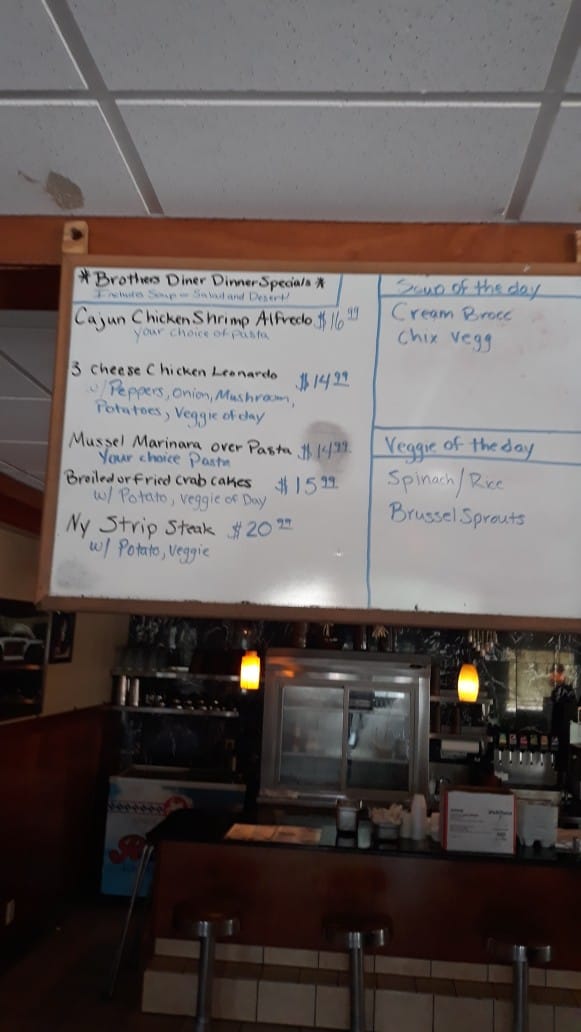 * Brothers Diner Dinner Specials *
Includes Soup or Salad and Desert!
Cajun Chicken Shrimp Alfredo $16 99
your choice of pasta
3 cheese Chicken Leonardo $14 99
w/ Peppers, Onion, Mushroom,
Potatoes, Veggie of day
Mussel Marinara over Pasta $14 99
Your choice Pasta
Broiled or Fried crab cakes $15 99
w/ Potato, Veggie of Day
Ny Strip Steak $20 99
w/ Potato, Veggie
Soup of the day
Cream Brocc
Chix Vegg
Veggie of the day
Spinach/Rice
Brussel Sprouts